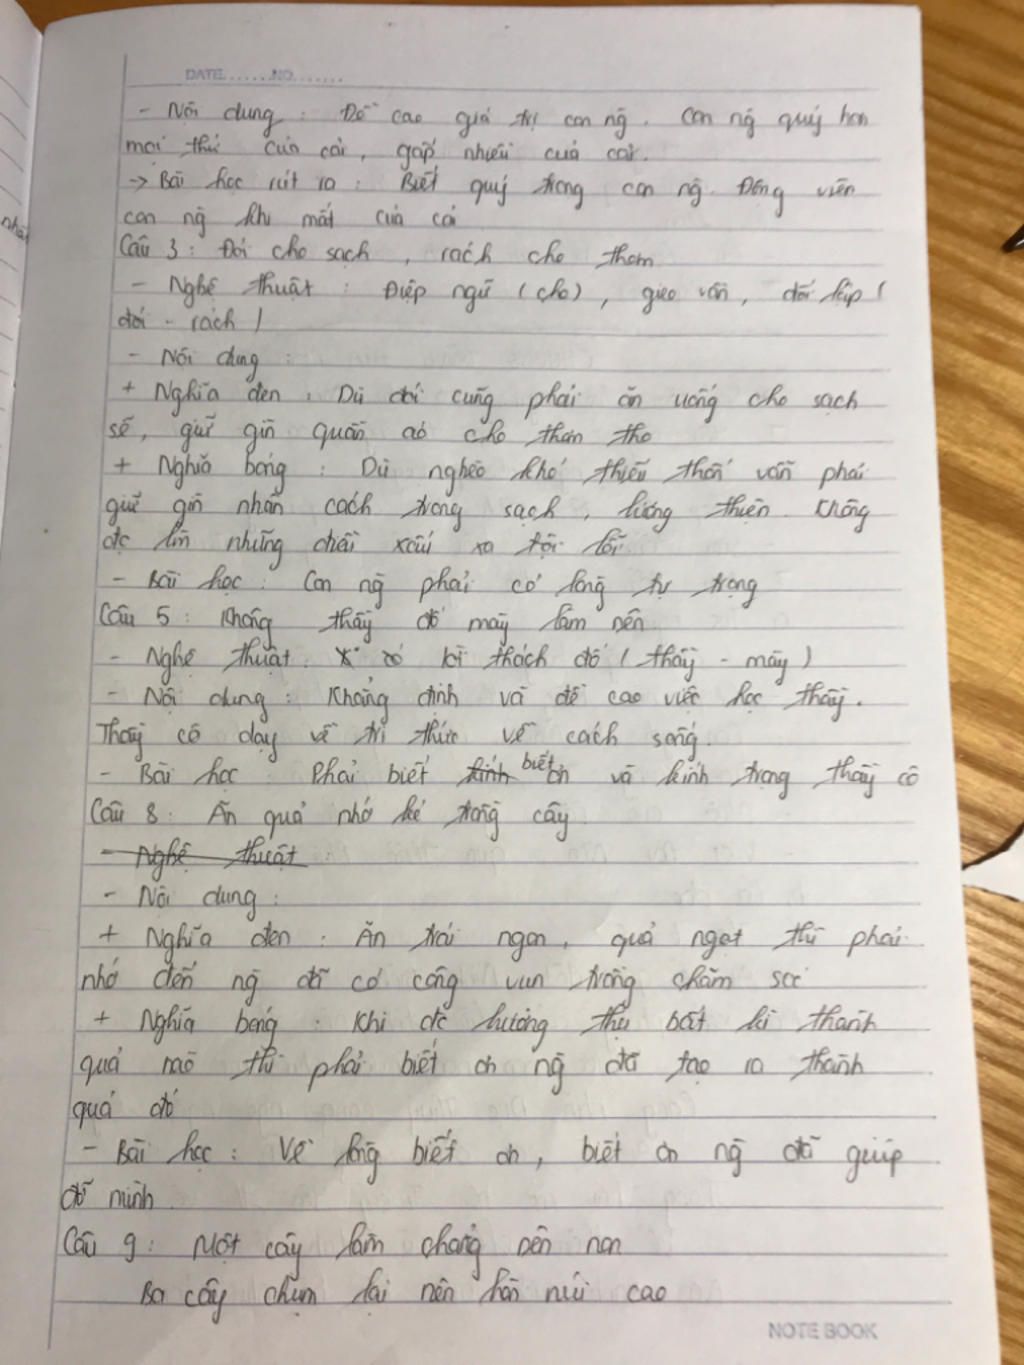 DATE.......NO.......
- Nội dung : Đề cao giá trị con ng̃. Con ng̃ quý hơn
mọi thứ của cải, gấp nhiều của cải.
→ Bài học rút ra : Biết quý trọng con ng̃. Động viên
con ng̃ khi mất của cải
Câu 3 : Đói cho sạch , rách cho thơm
- Nghệ thuật : Điệp ngữ (cho), gieo vần, đối lập (
đói - rách )
- Nội dung :
+ Nghĩa đen : Dù đói cũng phải ăn uống cho sạch
sẽ, giữ gìn quần áo cho thơm tho
+ Nghĩa bóng : Dù nghèo khó thiếu thốn vẫn phải
giữ gìn nhân cách trong sạch, lương thiện. Không
đc làm những điều xấu xa tội lỗi
- Bài học : Con ng̃ phải có lòng tự trọng
Câu 5 : Không thầy đố mày làm nên
- Nghệ thuật : thách đố ( thầy - mày )
- Nội dung : Khẳng định và đề cao việc học thầy.
Thầy cô dạy về tri thức về cách sống.
- Bài học : Phải biết kính biết ơn và kính trọng thầy cô
Câu 8 : Ăn quả nhớ kẻ trồng cây
- Nghệ thuật
- Nội dung :
+ Nghĩa đen : Ăn trái ngon, quả ngọt thì phải
nhớ đến ng̃ đã có công vun trồng chăm sóc
+ Nghĩa bóng : Khi đc hưởng thụ bất kì thành
quả nào thì phải biết ơn ng̃ đã tạo ra thành
quả đó
- Bài học : Về lòng biết ơn, biết ơn ng̃ đã giúp
đỡ mình
Câu 9 : Một cây làm chẳng nên non
Ba cây chụm lại nên hòn núi cao
NOTE BOOK